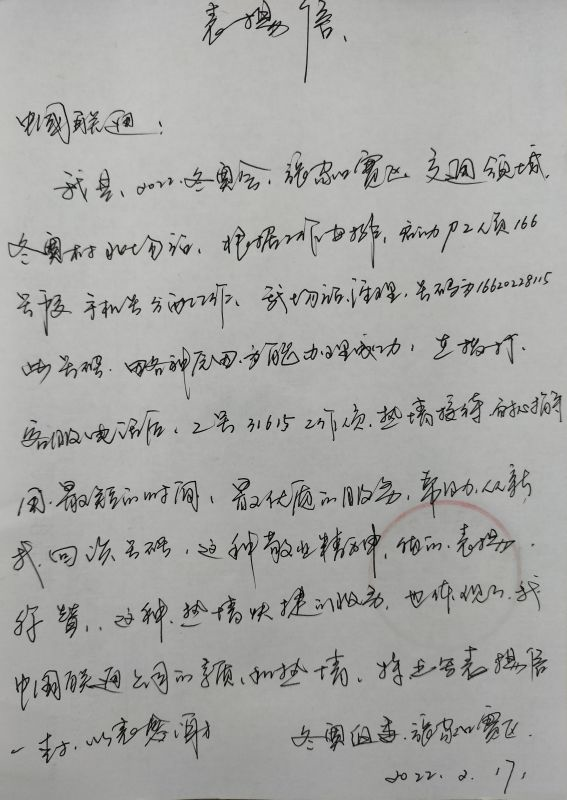 表扬信
中国联通:
我是,2022.冬奥会,张家口赛区,交通领域,
冬奥村 场站,根据工作安排,启动 人员166
号段 手机号分配工作,我场站,注理,号码为16620228115
此号码.因各种原因.未能办理成功,在拨打
客服电话后,工号31615工作人员.热情接待 耐心指导
用.最短的时间,最优质的服务,帮助从新
找回该号码,这种敬业精神,值的.表扬.
称赞,这种.热情快捷的服务,也体现了.我
中国联通公司的素质,和热情,特此写表扬信
一封.以表感谢
冬奥组委.张家口赛区.
2022.2.17.